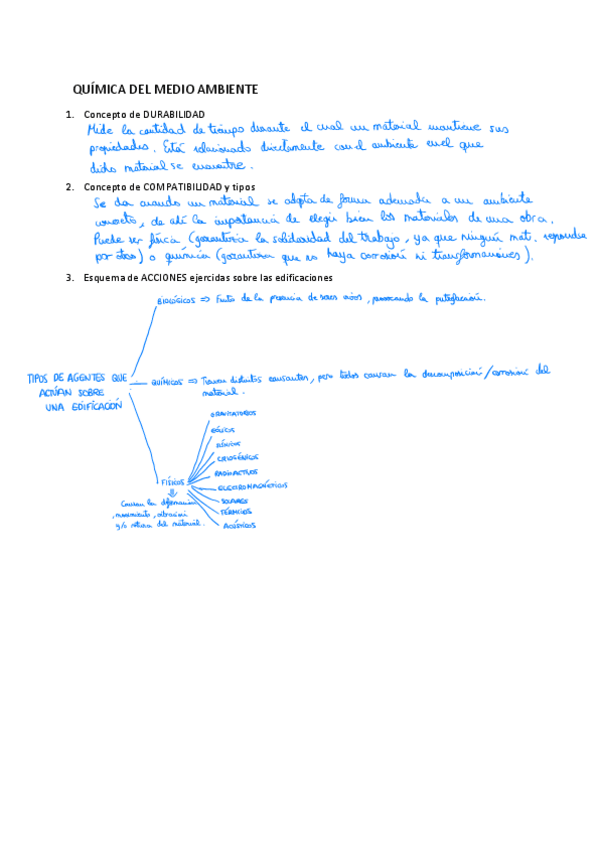 QUÍMICA DEL MEDIO AMBIENTE
1. Concepto de DURABILIDAD
Mide la cantidad de tiempo durante el cual un material mantiene sus
propiedades. Está relacionado directamente con el ambiente en el que
dicho material se encuentre.
2. Concepto de COMPATIBILIDAD y tipos
Se da cuando un material se adapta de forma adecuada a un ambiente
concreto, de ahí la importancia de elegir bien los materiales de una obra.
Puede ser física (garantiza la solidaridad del trabajo, ya que ningún mat. responde
por otro) o química (garantiza que no haya corrosión ni transformaciones).
3. Esquema de ACCIONES ejercidas sobre las edificaciones
BIOLÓGICOS => Fruto de la presencia de seres vivos, provocando la putrefacción.
TIPOS DE AGENTES QUE
ACTÚAN SOBRE
UNA EDIFICACIÓN
QUÍMICOS => Tienen distintos causantes, pero todos causan la descomposición/corrosión del
material.
GRAVITATORIOS
EÓLICOS
CRIOGÉNICOS
RADIACTIVOS
ELECTROMAGNÉTICOS
SOLARES
TÉRMICOS
ACÚSTICOS
FÍSICOS
Causan la deformación
, movimiento, alteración
y/o rotura del material.